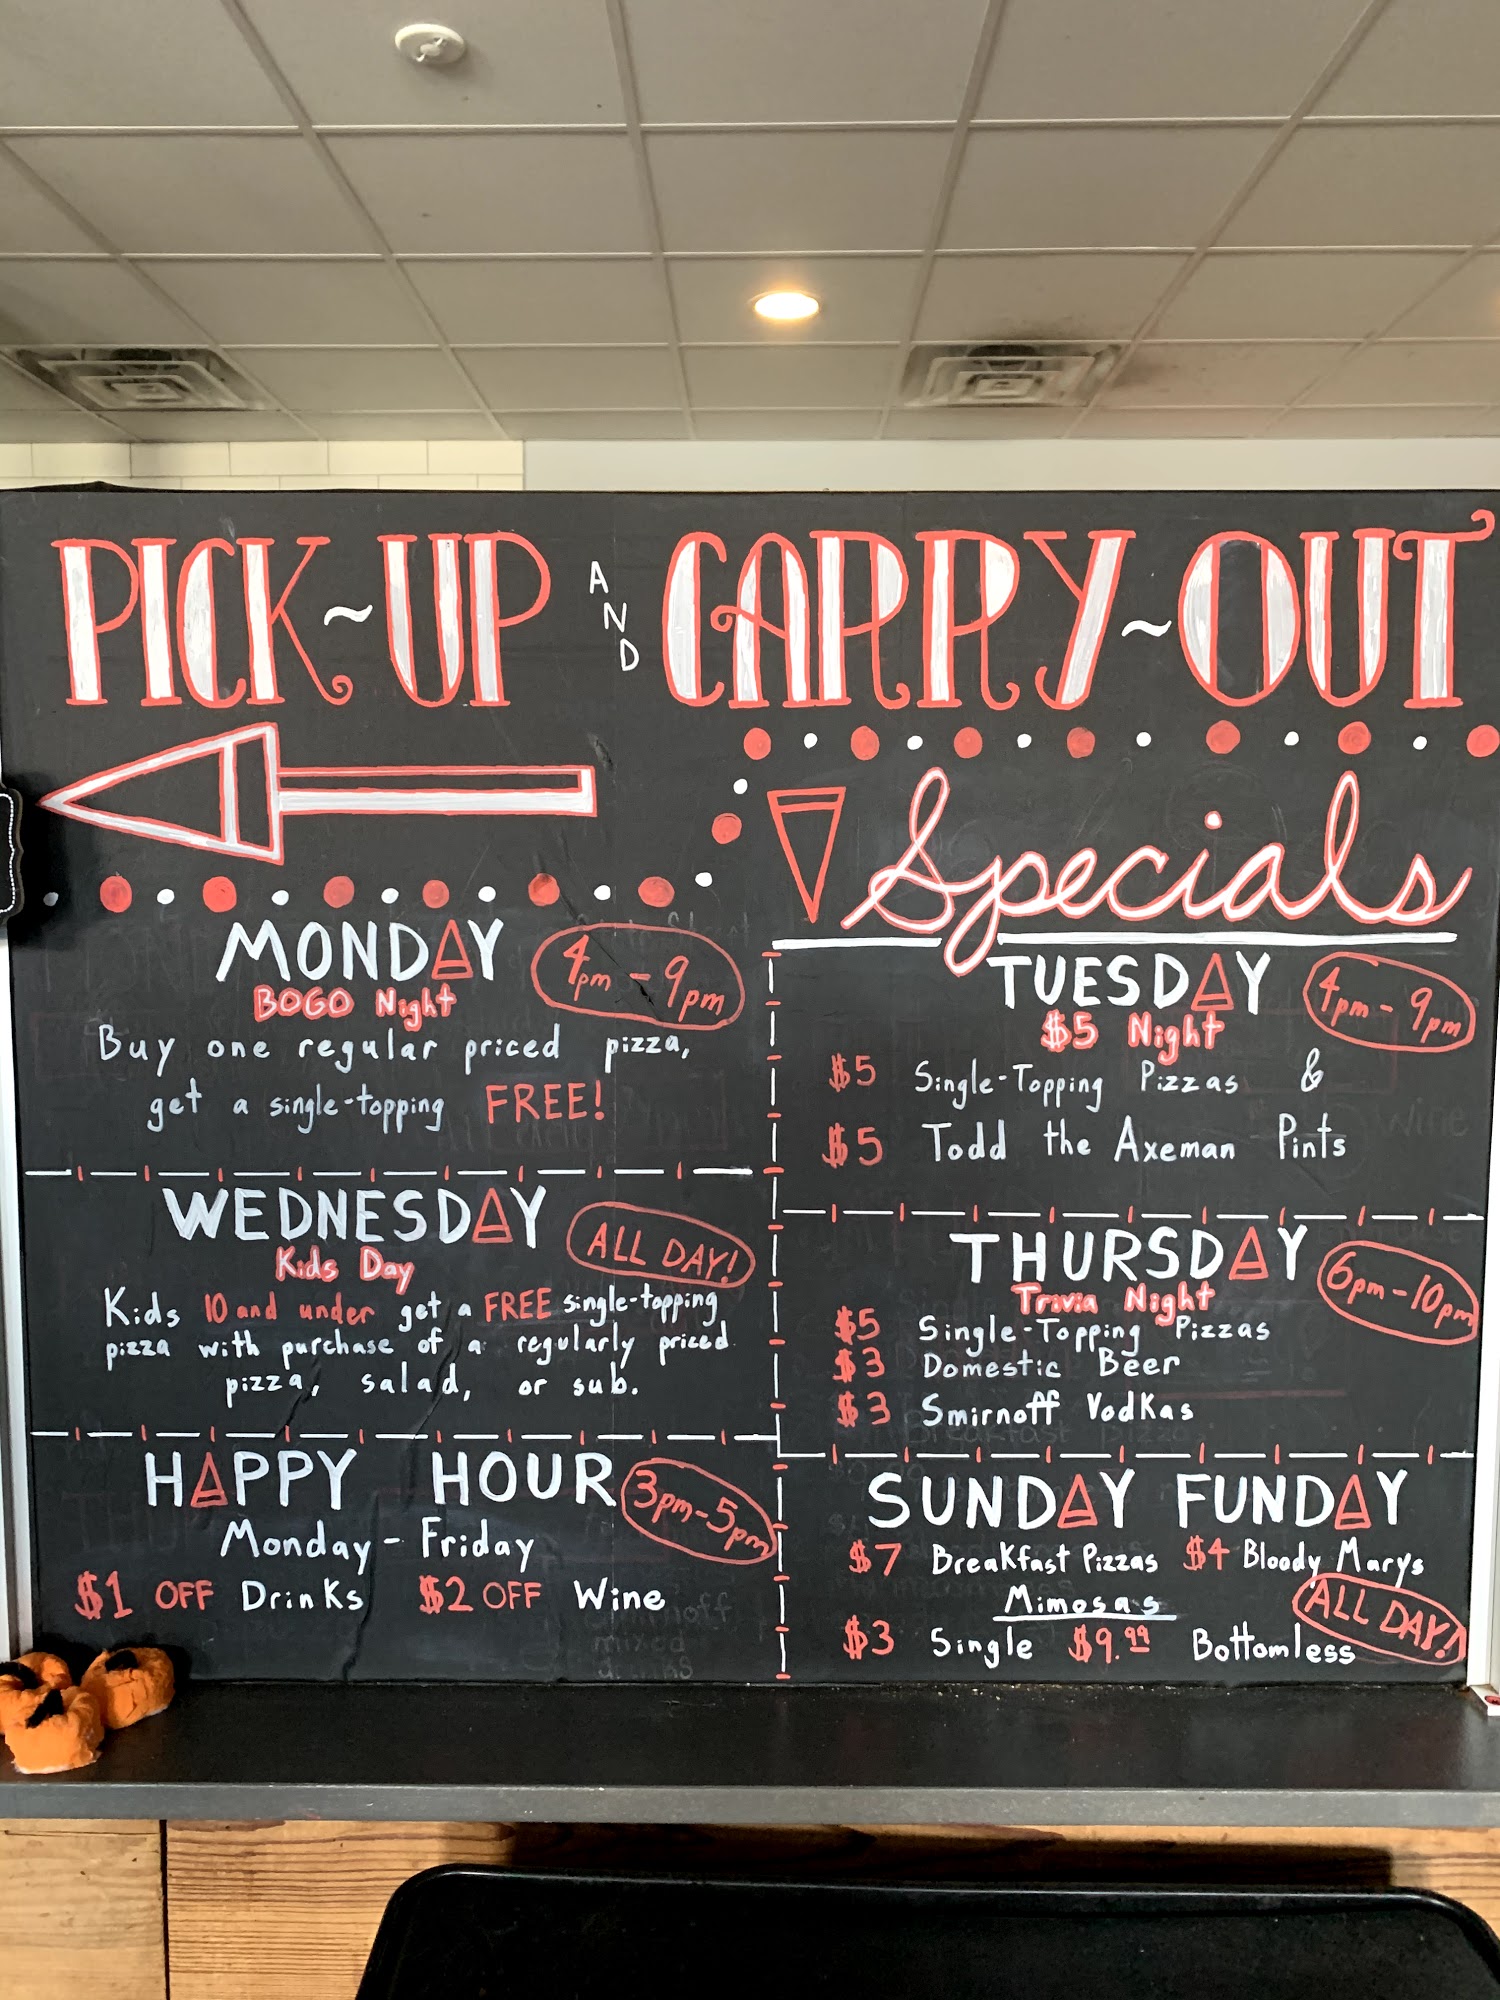 PICK~UP AND CARRY~OUT
Specials
MONDAY 4pm - 9pm
BOGO Night
Buy one regular priced pizza,
get a single-topping FREE!
TUESDAY 4pm - 9pm
$5 Night
$5 Single-Topping Pizzas &
$5 Todd the Axeman Pints
WEDNESDAY ALL DAY!
Kids Day
Kids 10 and under get a FREE single-topping
pizza with purchase of a regularly priced
pizza, salad, or sub.
THURSDAY 6pm - 10pm
Trivia Night
$5 Single-Topping Pizzas
$3 Domestic Beer
$3 Smirnoff Vodkas
HAPPY HOUR 3pm - 5pm
Monday - Friday
$1 OFF Drinks $2 OFF Wine
SUNDAY FUNDAY
$7 Breakfast Pizzas $4 Bloody Marys
Mimosas ALL DAY!
$3 Single $9.99 Bottomless